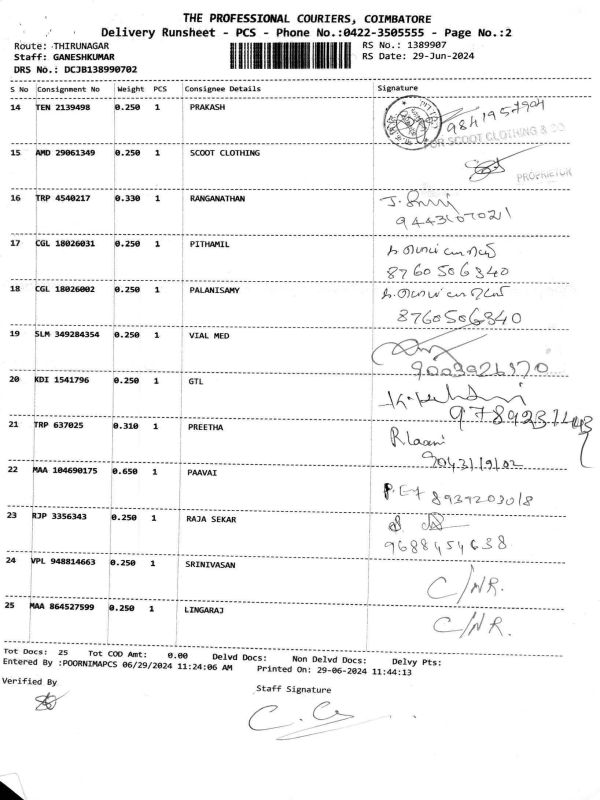 THE PROFESSIONAL COURIERS, COIMBATORE
Delivery Runsheet - PCS - Phone No.:0422-3505555 - Page No.:2
Route: THIRUNAGAR RS No.: 1389907
Staff: GANESHKUMAR RS Date: 29-Jun-2024
DRS No.: DCJB138990702
S No Consignment No Weight PCS Consignee Details Signature
14 TEN 2139498 0.250 1 PRAKASH 9841957904
FOR SCOOT CLOTHING & CO
15 AMD 29061349 0.250 1 SCOOT CLOTHING
PROPRIETOR
16 TRP 4540217 0.330 1 RANGANATHAN
17 CGL 18026031 0.250 1 PITHAMIL
8760506340
18 CGL 18026002 0.250 1 PALANISAMY
8760506340
19 SLM 349284354 0.250 1 VIAL MED
20 KDI 1541796 0.250 1 GTL
21 TRP 637025 0.310 1 PREETHA
22 MAA 104690175 0.650 1 PAAVAI
23 RJP 3356343 0.250 1 RAJA SEKAR
9688454638
24 VPL 948814663 0.250 1 SRINIVASAN C/NR.
25 MAA 864527599 0.250 1 LINGARAJ C/NR.
Tot Docs: 25 Tot COD Amt: 0.00 Delvd Docs: Non Delvd Docs: Delvy Pts:
Entered By :POORNIMAPCS 06/29/2024 11:24:06 AM Printed On: 29-06-2024 11:44:13
Verified By
Staff Signature